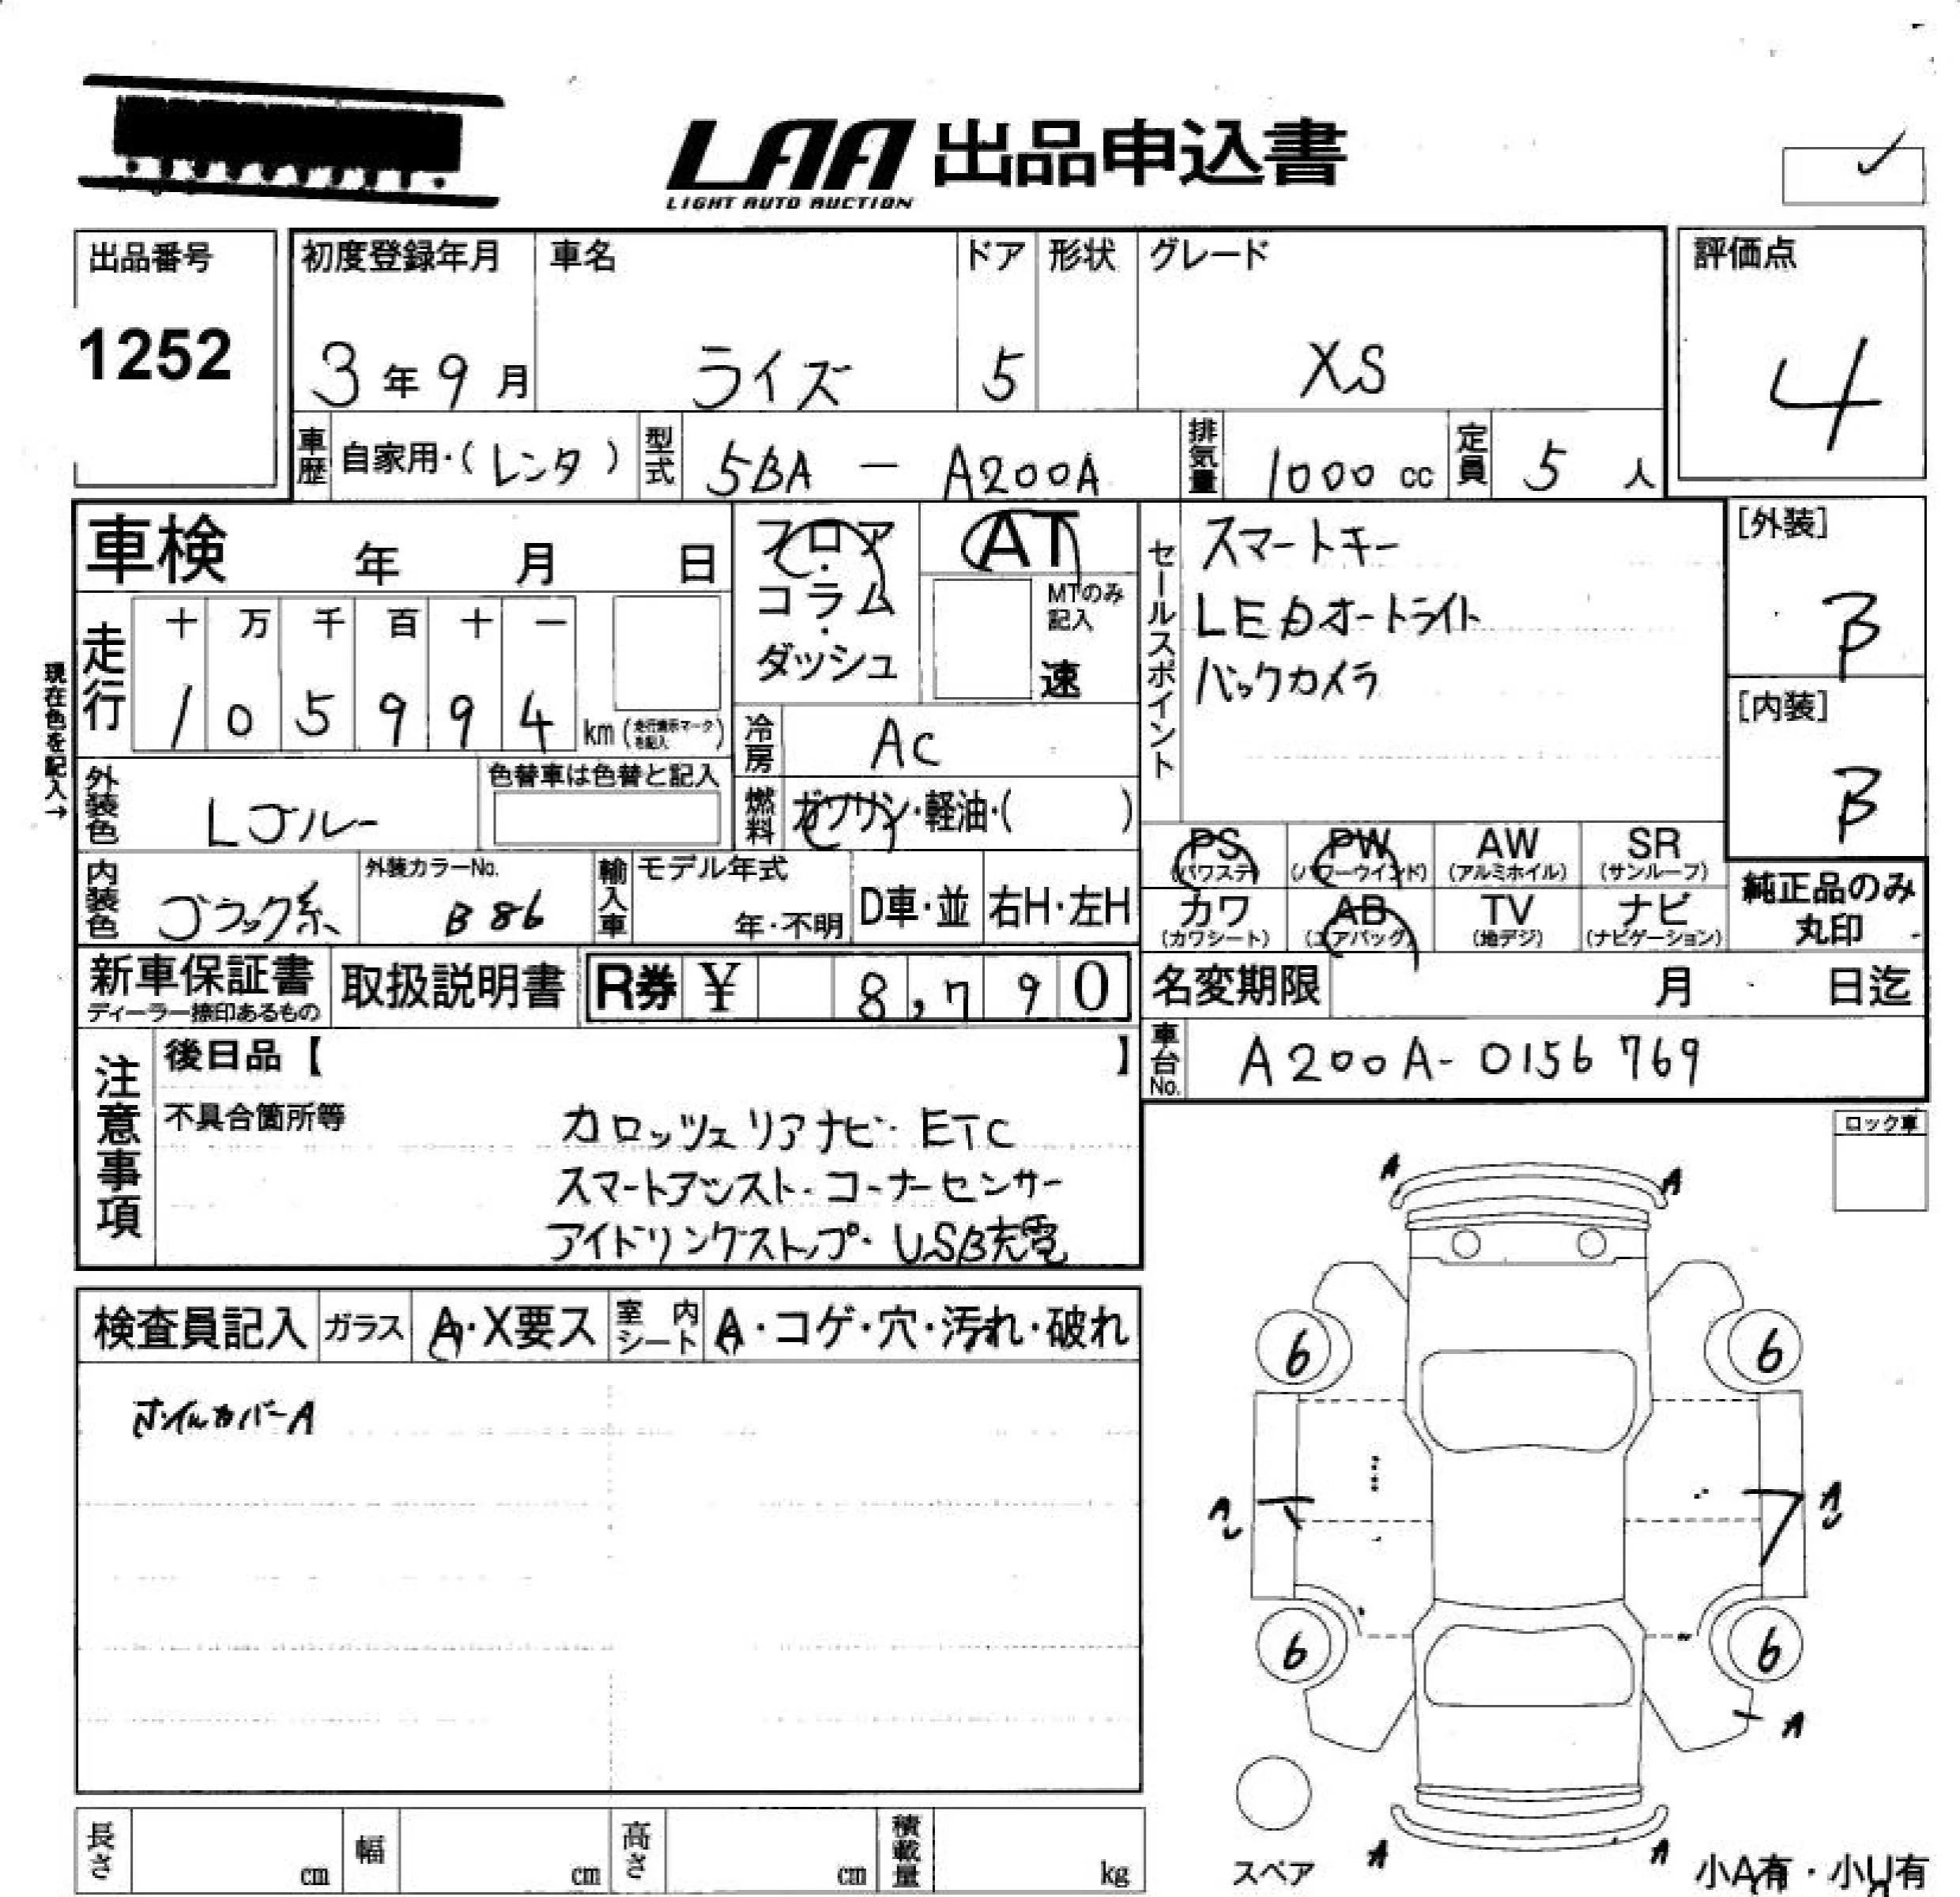 LAA 出品申込書
LIGHT AUTO AUCTION
出品番号
1252
初度登録年月 車名 ドア 形状 グレード
3年9月 ライズ 5 XS
評価点
4
車歴 自家用・(レンタ) 型式 5BA — A200A 排気量 1000cc 定員 5人
車検 年 月 日
フロア・コラム・ダッシュ
AT
MTのみ記入
速
セールスポイント
スマートキー
LEDオートライト
バックカメラ
[外装]
B
[内装]
B
現在色を記入→
走行 十 万 千 百 十 一
1 0 5 9 9 4 km (走行表示マークを記入)
冷房 AC
外装色 Lブルー 色替車は色替と記入
燃料 ガソリン・軽油・( )
PS (パワステ) PW (パワーウインド) AW (アルミホイル) SR (サンルーフ)
カワ (カワシート) AB (エアバック) TV (地デジ) ナビ (ナビゲーション)
純正品のみ丸印
内装色 ブラック系 外装カラーNo. B86 輸入車 モデル年式 年・不明 D車・並 右H・左H
新車保証書 ディーラー捺印あるもの 取扱説明書 R券 ¥ 8,790
名変期限 月 日迄
車台No. A200A-0156769
注意事項
後日品【 】
不具合箇所等
カロッツェリアナビ・ETC
スマートアシスト・コーナーセンサー
アイドリングストップ・USB充電
ロック車
検査員記入 ガラス A・X要ス 室内シート A・コゲ・穴・汚れ・破れ
ホイルカバーA
A A
6 6
6 6
A
A A
スペア
小A有・小U有
長さ cm 幅 cm 高さ cm 積載量 kg